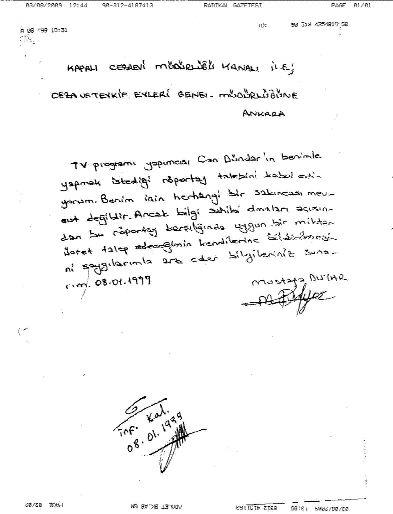 03/08/2009 12:44 90-312-4187413 RADIKAL GAZETESI PAGE 01/01
KAPALI CEZAEVİ MÜDÜRLÜĞÜ KANALI İLE;
CEZA VE TEVKİF EVLERİ GENEL MÜDÜRLÜĞÜNE
ANKARA
TV programı yapımcısı Can Dündar'ın benimle
yapmak istediği röportaj talebini kabul edi-
yorum. Benim için herhangi bir sakıncası mev-
cut değildir. Ancak bilgi sahibi olmaları açısın-
dan bu röportaj karşılığında uygun bir miktar
ücret talep edeceğimin kendilerine bildirilmesi-
ni saygılarımla arz eder bilgilerinize suna-
rım. 08.01.1999
Mustafa DUYAR
inf. Kal.
08.01.1999